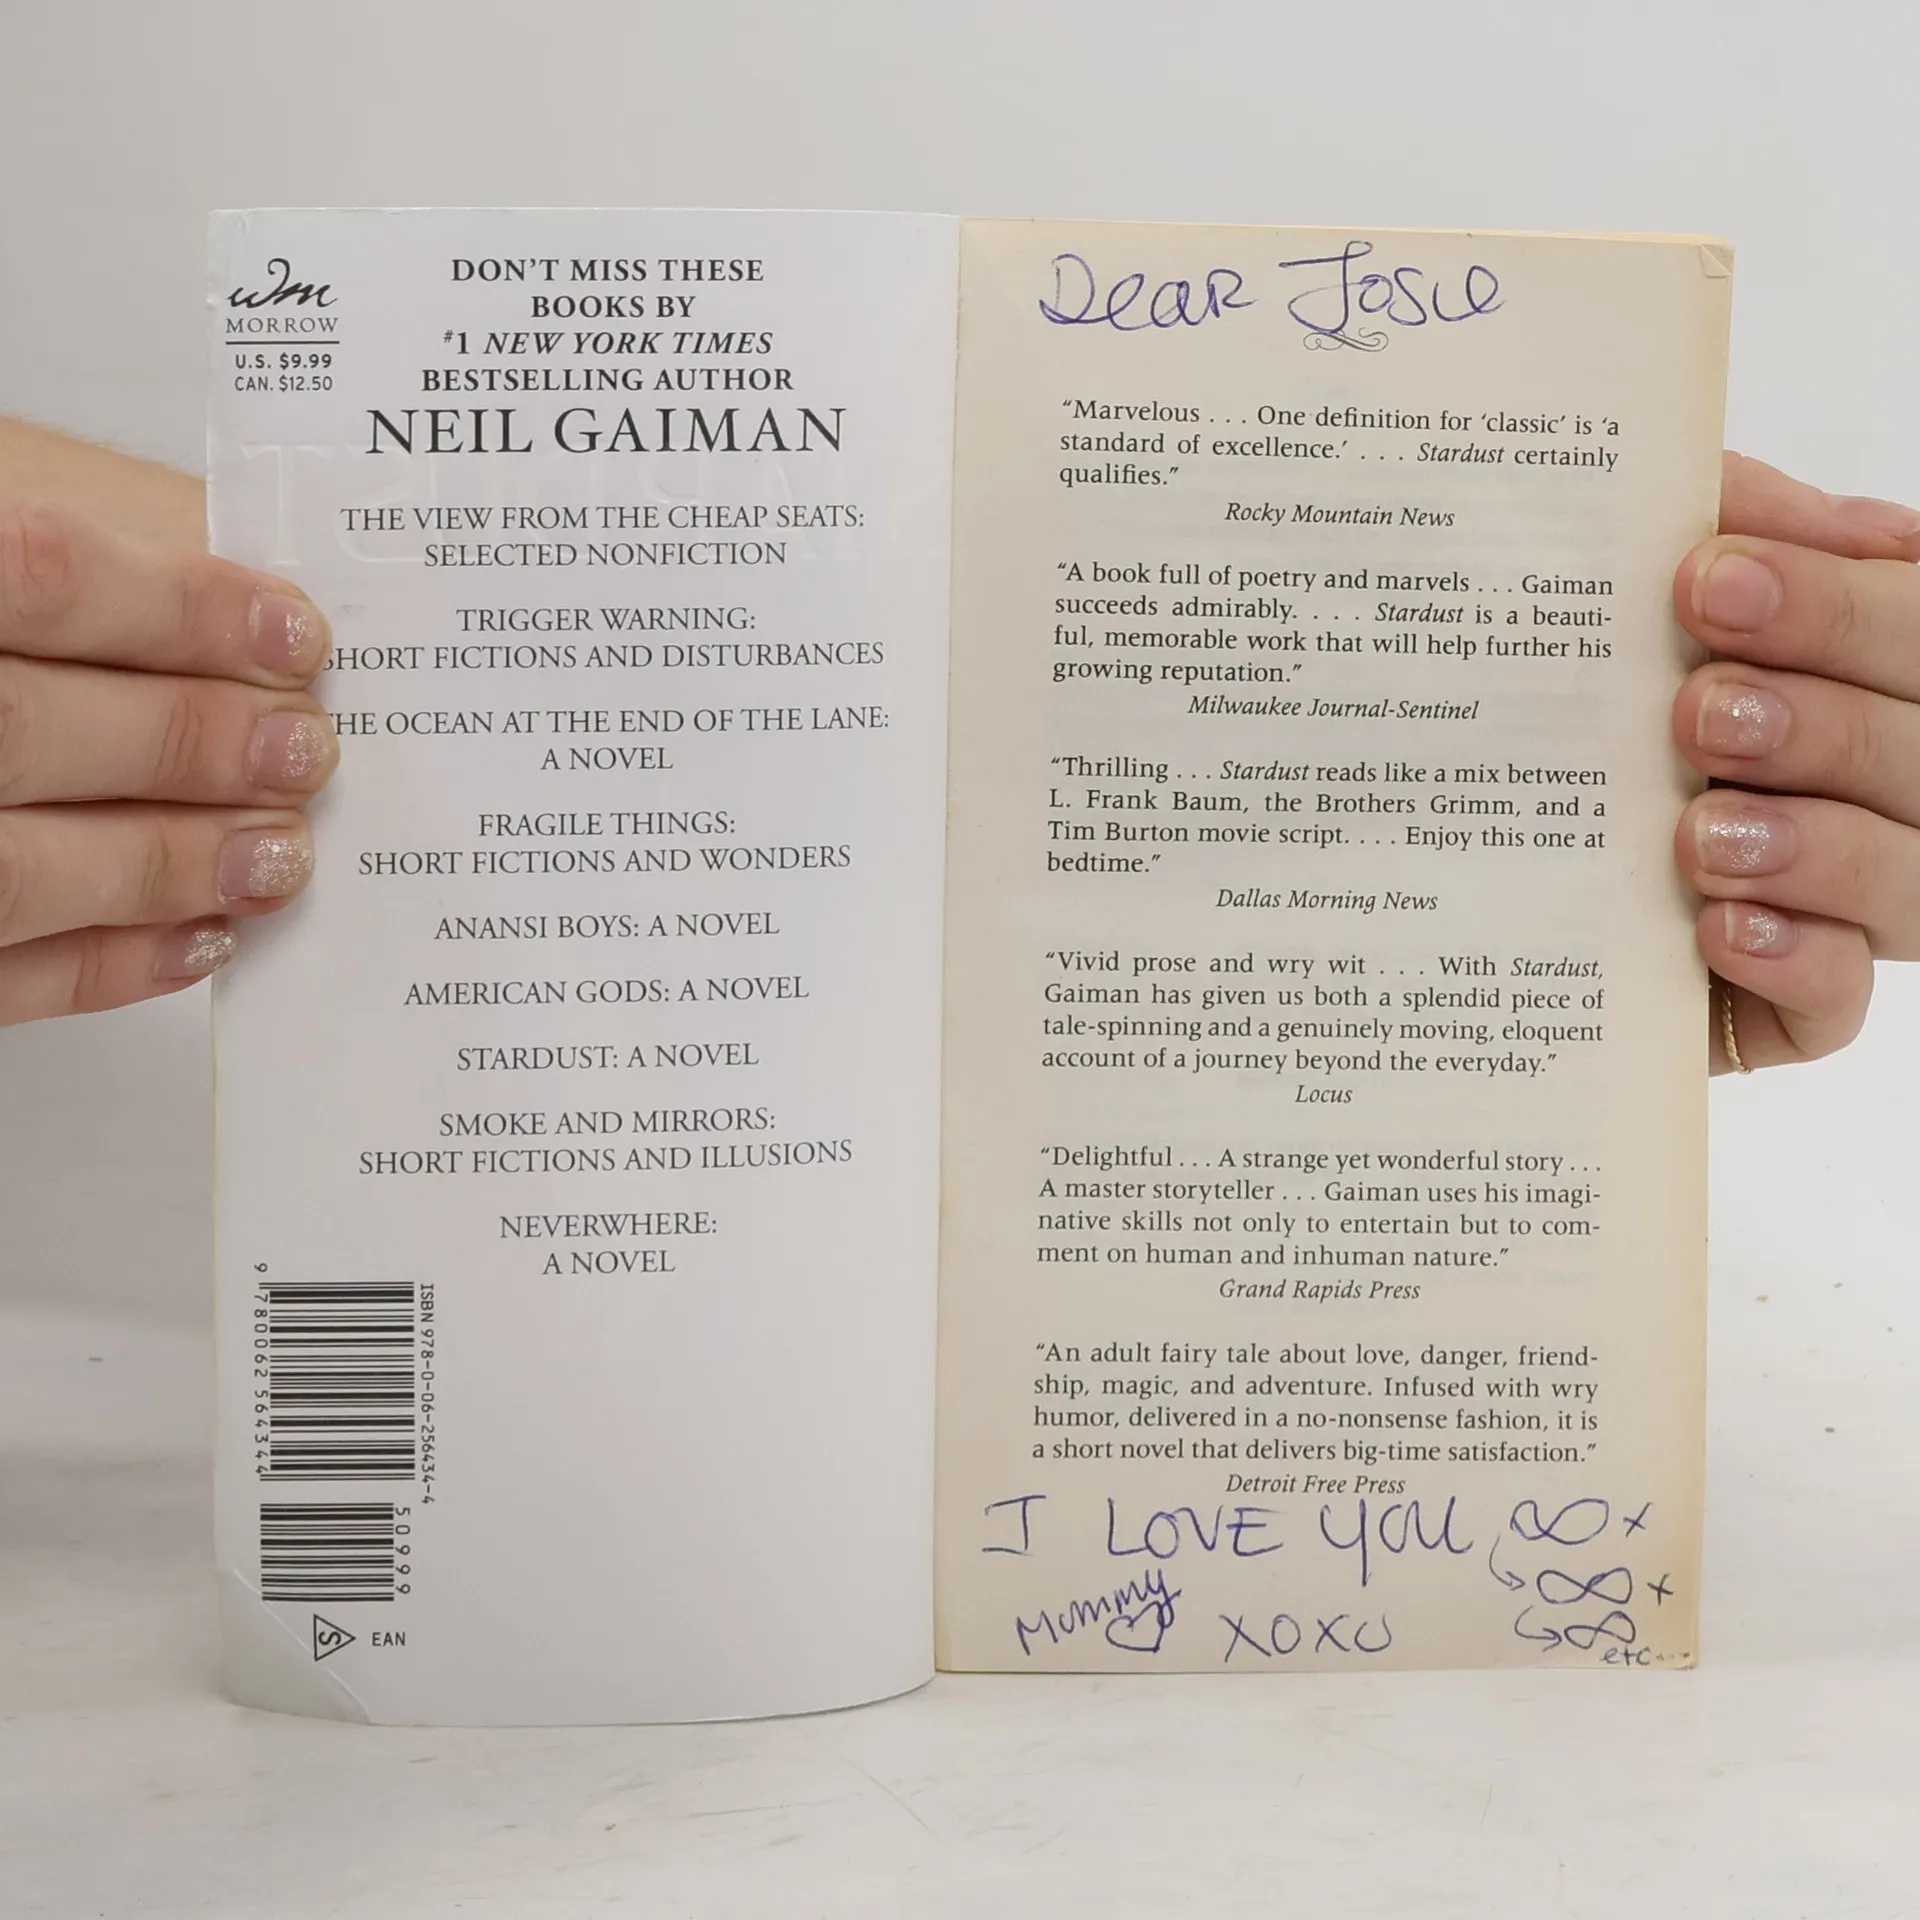 wm
MORROW
U.S. $9.99
CAN. $12.50
DON'T MISS THESE
BOOKS BY
#1 NEW YORK TIMES
BESTSELLING AUTHOR
NEIL GAIMAN
THE VIEW FROM THE CHEAP SEATS:
SELECTED NONFICTION
TRIGGER WARNING:
SHORT FICTIONS AND DISTURBANCES
THE OCEAN AT THE END OF THE LANE:
A NOVEL
FRAGILE THINGS:
SHORT FICTIONS AND WONDERS
ANANSI BOYS: A NOVEL
AMERICAN GODS: A NOVEL
STARDUST: A NOVEL
SMOKE AND MIRRORS:
SHORT FICTIONS AND ILLUSIONS
NEVERWHERE:
A NOVEL
ISBN 978-0-06-256434-4
9 780062 564344
50999
S EAN
Dear Josie
“Marvelous . . . One definition for ‘classic’ is ‘a
standard of excellence.’ . . . Stardust certainly
qualifies.”
Rocky Mountain News
“A book full of poetry and marvels . . . Gaiman
succeeds admirably. . . . Stardust is a beauti-
ful, memorable work that will help further his
growing reputation.”
Milwaukee Journal-Sentinel
“Thrilling . . . Stardust reads like a mix between
L. Frank Baum, the Brothers Grimm, and a
Tim Burton movie script. . . . Enjoy this one at
bedtime.”
Dallas Morning News
“Vivid prose and wry wit . . . With Stardust,
Gaiman has given us both a splendid piece of
tale-spinning and a genuinely moving, eloquent
account of a journey beyond the everyday.”
Locus
“Delightful . . . A strange yet wonderful story . . .
A master storyteller . . . Gaiman uses his imagi-
native skills not only to entertain but to com-
ment on human and inhuman nature.”
Grand Rapids Press
“An adult fairy tale about love, danger, friend-
ship, magic, and adventure. Infused with wry
humor, delivered in a no-nonsense fashion, it is
a short novel that delivers big-time satisfaction.”
Detroit Free Press
I LOVE YOU ∞ x
→ ∞ x
→ ∞
etc...
Mommy ♡ XOXO